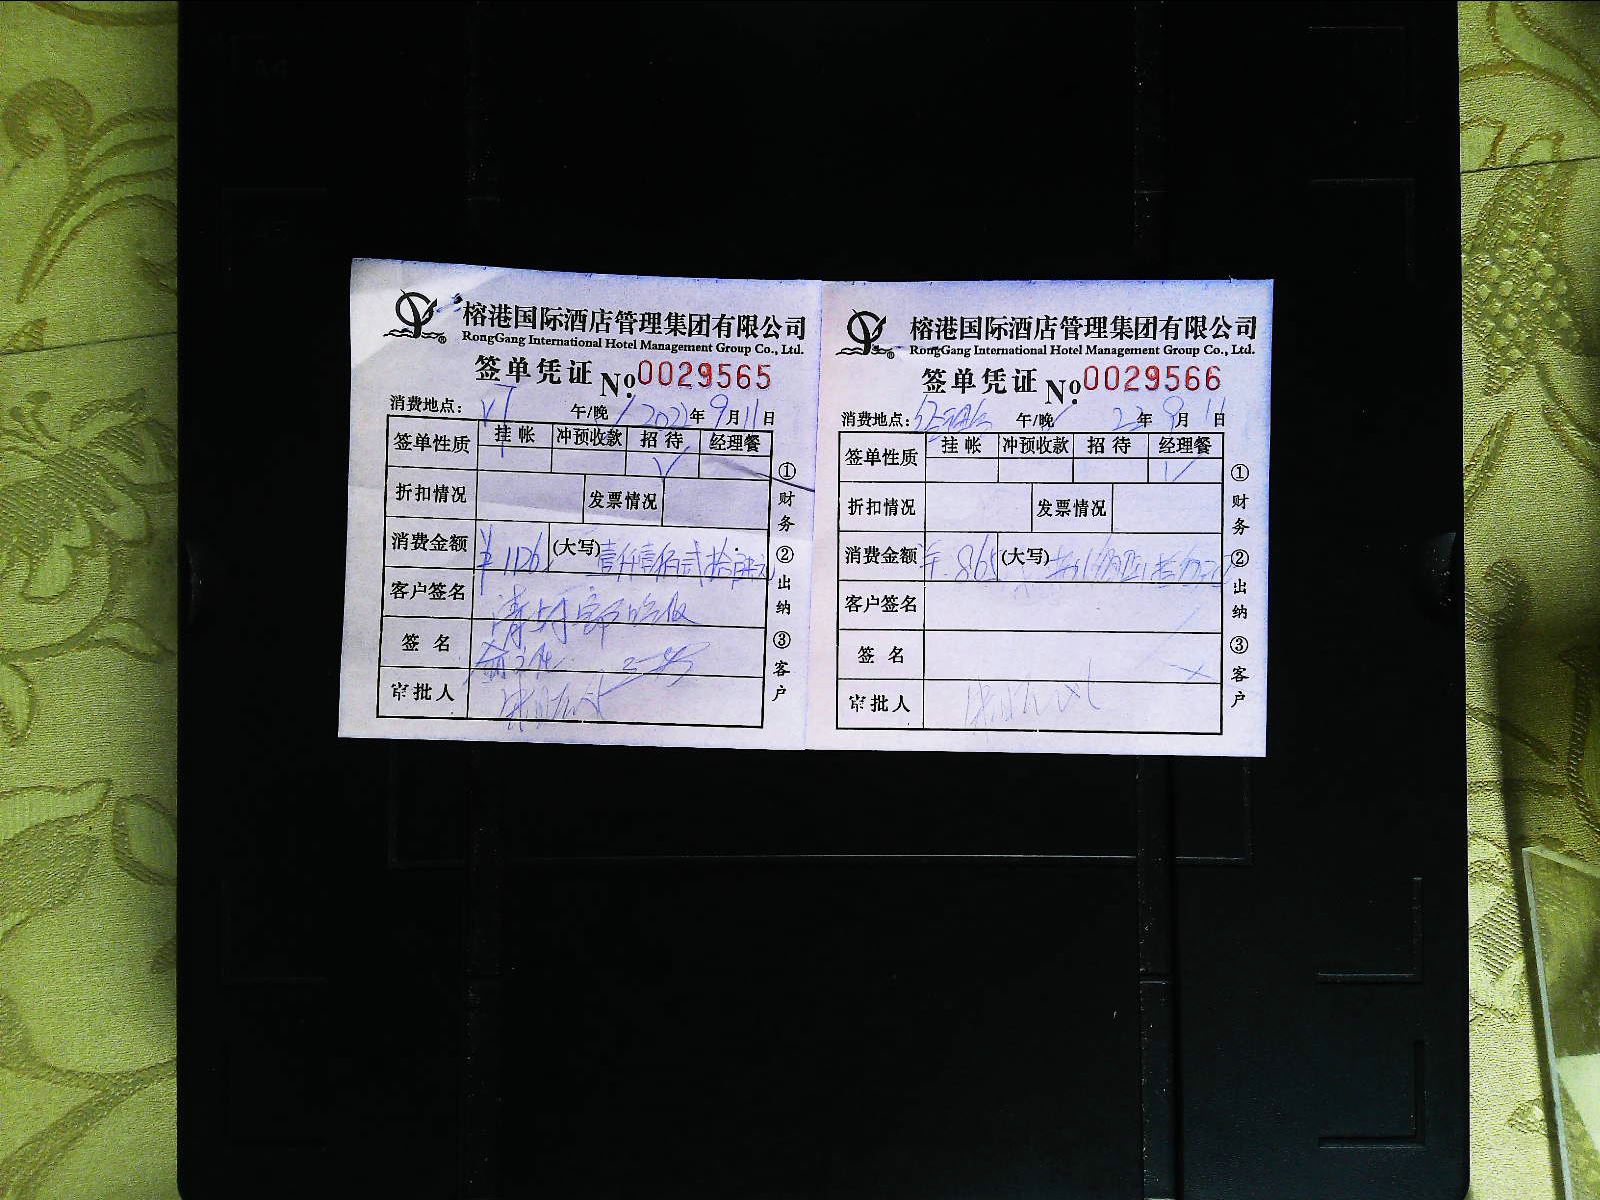 榕港国际酒店管理集团有限公司
RongGang International Hotel Management Group Co., Ltd.
签单凭证 No. 0029565
消费地点: 午/晚 2022年9月11日
签单性质 挂帐 冲预收款 招待 经理餐
√
折扣情况 发票情况
消费金额 ¥1126 (大写) 壹仟壹佰贰拾陆元
客户签名
签名
审批人
①财务 ②出纳 ③客户
榕港国际酒店管理集团有限公司
RongGang International Hotel Management Group Co., Ltd.
签单凭证 No. 0029566
消费地点: 午/晚 22年9月11日
签单性质 挂帐 冲预收款 招待 经理餐
√
折扣情况 发票情况
消费金额 ¥865 (大写)
客户签名
签名
审批人
①财务 ②出纳 ③客户